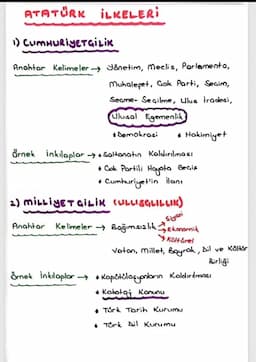 ATATÜRK İLKELERİ
1) CUMHURİYETÇİLİK
Anahtar Kelimeler → Yönetim, Meclis, Parlamento,
Muhalefet, Çok Parti, Seçim,
Seçme-Seçilme, Ulus İradesi,
Ulusal Egemenlik
• Demokrasi • Hakimiyet
Örnek İnkilaplar → • Saltanatın Kaldırılması
• Çok Partili Hayata Geçiş
• Cumhuriyet'in İlanı
2) MİLLİYETÇİLİK (ULUSÇULLUK)
Anahtar Kelimeler → Bağımsızlık → Siyasi
→ Ekonomik
→ Kültürel
Vatan, Millet, Bayrak, Dil ve Kültür
Birliği
Örnek İnkilaplar → • Kapütülasyonların Kaldırılması
• Kabotaj Kanunu
• Türk Tarih Kurumu
• Türk Dil Kurumu